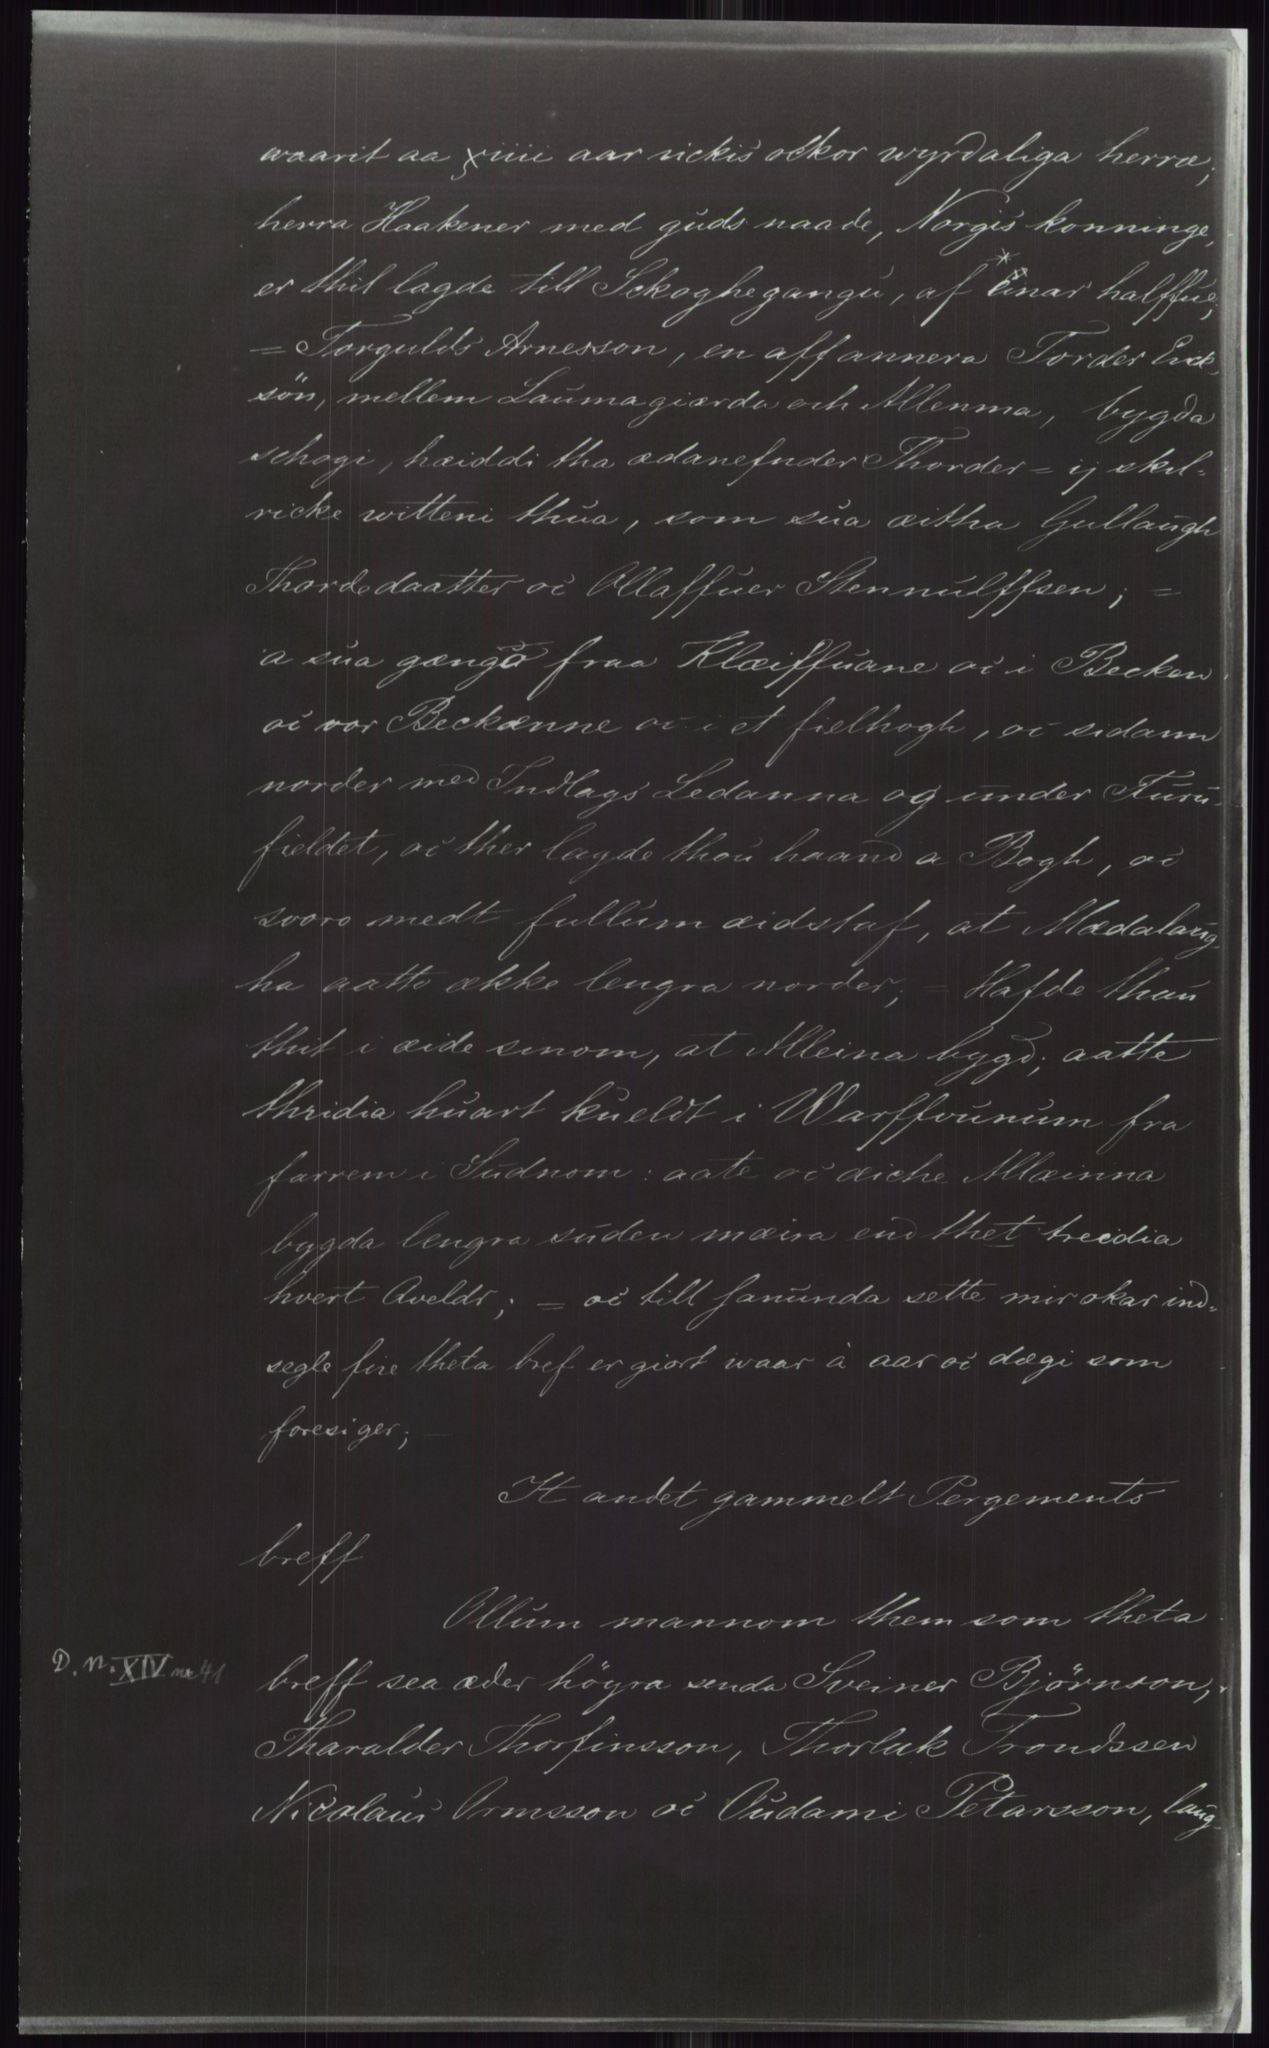 waarit aa xiiii aar rickis ockor wyrdaliga herræ;
herra Haakener med guds naade, Norgis konninge,
er thil lagde till Sckoghegangu, af Einar halffue;
= Torgulds Arnesson, en aff annera Torder Erick-
sön, mellem Laumagiærda och Allenma, bygda
schogi, hæiddi tha ædanefnder Thorder = ij skil-
ricke witteni thua, som sua æitha Gullaugh
Thordedaatter oc Ollaffuer Stennulffsen; =
a sua gængo fraa Klæiffuane oc i Becken
oc vor Beckænne oc i et fielhogh, oc sidann
norder med Indlags Ledanna og under Furu-
fieldet, oc ther lagde thou haand a Bogh, oc
svoro medt fullum æidstaf, at Mædalaug-
ha aatto ække lengra norder; = Hafde thau
thit i æide senom, at Alleina bygd; aatte
thridia huart kueldt i Warffvunum fra
farrem i Sudnom: aate oc æiche Allæinna
bygda lengra suden mæira end thet treidia
hvert Qveldr; = oc till sanunda sette mir okar ind-
segle fire theta bref er giort waar à aar oc dægi som
foresiger; —
It andet gammelt Pergements
breff
Ollum mannom them som theta
D. N. XIV nr 41
breff sea æder högra senda Sveiner Björnson,
Tharalder Thorfinsson, Thorluk Trondssen
Nicolaus Ormsson oc Oudami Petarsson, laug-